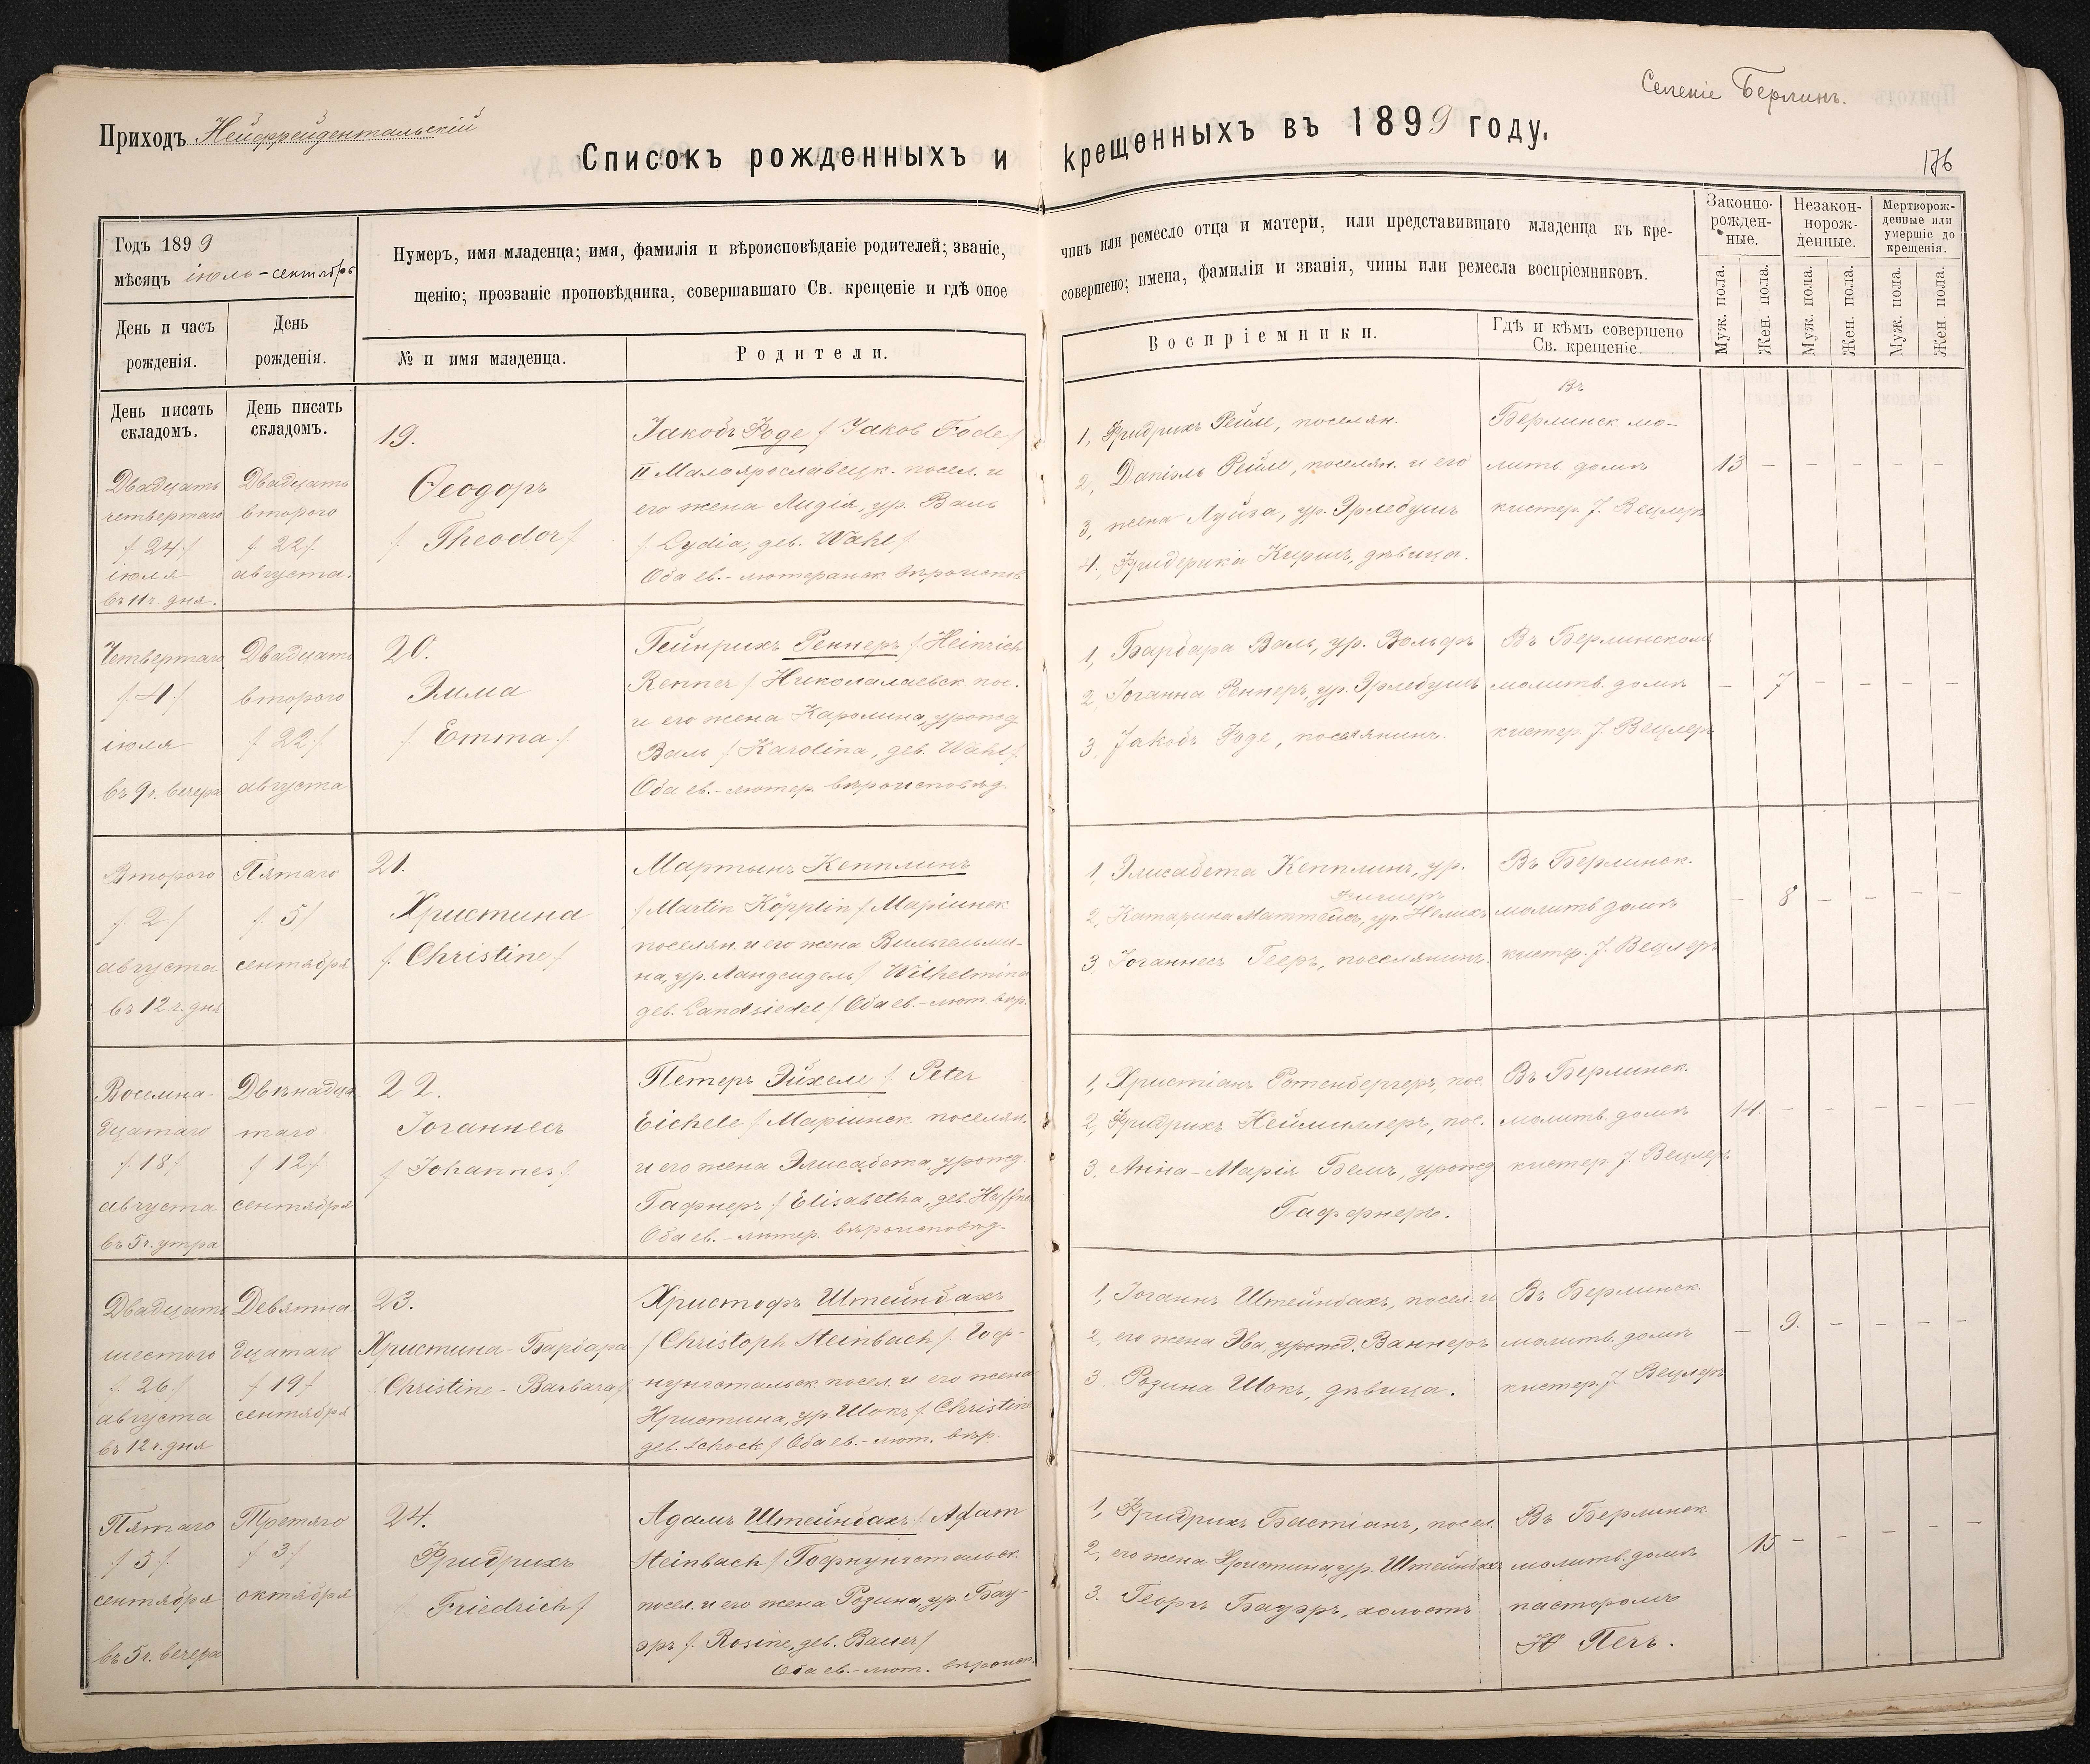 Селеніе Берлинъ.
Приходъ Нейфрейдентальскій
Списокъ рожденныхъ и крещенныхъ въ 1899 году.
176
Годъ 1899
мѣсяцъ іюль-сентябрь
День и часъ рожденія.
День рожденія.
Нумеръ, имя младенца; имя, фамилія и вѣроисповѣданіе родителей; званіе, чинъ или ремесло отца и матери, или представившаго младенца къ кре-
щенію; прозваніе проповѣдника, совершавшаго Св. крещеніе и гдѣ оное совершено; имена, фамиліи и званія, чины или ремесла воспріемниковъ.
№ и имя младенца.
Родители.
Воспріемники.
Гдѣ и кѣмъ совершено
Св. крещеніе.
Законно-
рожден-
ные.
Незакон-
норож-
денные.
Мертворож-
денные или
умершіе до
крещенія.
Муж. пола.
Жен. пола.
Муж. пола.
Жен. пола.
Муж. пола.
Жен. пола.
День писать
складомъ.
День писать
складомъ.
Двадцать
четвертаго
/24/
іюля
въ 11 ч. дня.
Двадцать
второго
/22/
августа.
19.
Ѳеодоръ
/Theodor/
Іакобъ Фоде /Jakob Fode/
II Малоярославецк. посел. и
его жена Лидія, ур. Валь
/Lydia, geb. Wahl/
Оба ев.-лютеранск. вѣроиспов.
1, Фридрихъ Рейле, поселян.
2, Даніэль Рейле, поселян. и его
3, жена Луиза, ур. Эрлебушъ
4., Фридерика Киршъ, дѣвица.
въ
Берлинск. мо-
литв. домѣ
кистер. J. Вецлеръ
13 - - - - -
Четвертаго
/4/
іюля
въ 9 ч. вечера
Двадцать
второго
/22/
августа
20.
Эмма
/Emma/
Гейнрихъ Реннеръ /Heinrich
Renner/ Николалаевск пос.
и его жена Каролина, урожд.
Валь /Karolina, geb. Wahl/.
Оба ев.-лютер. вѣроисповѣд.
1, Барбара Валь, ур. Вольфъ
2, Іоганна Реннеръ, ур. Эрлебушъ
3, Jакобъ Фоде, поселянинъ.
Въ Берлинскомъ
молитв. домѣ
кистер. J. Вецлеръ
- 7 - - - -
Второго
/2/
августа
въ 12 ч. дня
Пятаго
/5/
сентября
21.
Христина
/Christine/
Мартынъ Кепплинъ
/Martin Köpplin/ Маріинск
поселян. и его жена Вильгельми-
на, ур. Ландсидель /Wilhelmina
geb. Landsiedel/ Оба ев.-лют. вѣр.
1, Элисабета Кепплинъ, ур.
2, Катарина Маттейсъ, ур.
3 Іоганнесъ Гееръ, поселянинъ.
Въ Берлинск.
молитв. домѣ
кистер. J. Вецлеръ
- 8 - - - -
Восемна-
дцатаго
/18/
августа
въ 5 ч. утра
Двѣнадца
таго
/12/
сентября
22.
Іоганнесъ
/Johannes/
Петеръ Эйхеле /Peter
Eichele/ Маріинск поселян.
и его жена Элисабета, урожд.
Гафнеръ /Elisabetha, geb. Haffner
Оба ев.-лютер. вѣроисповѣд.
1, Христіанъ Ротенбергеръ, пос.
2, Фридрихъ Неймиллеръ, пос.
3. Анна-Марія Бемъ, урожд.
Гаффнеръ.
Въ Берлинск.
молитв. домѣ
кистер. J. Вецлеръ
14 - - - - -
Двадцать
шестого
/26/
августа
въ 12 ч. дня
Девятна-
дцатаго
/19/
сентября
23.
Христина-Барбара
/Christine-Barbara/
Христофъ Штейнбахъ
/Christoph Steinbach/. Гоф-
нунгстальск. посел. и его жена
Христина, ур. Шокъ /Christine
geb. Schock/ Оба ев.-лют. вѣр.
1, Іоганнъ Штейнбахъ, посел. и
2, его жена Эва, урожд. Ваннеръ
3. Розина Шокъ, дѣвица.
Въ Берлинск.
молитв. домѣ
кистер. J. Вецлеръ
- 9. - - - -
Пятаго
/5/
сентября
въ 5 ч. вечера
Третяго
/3/
октября
24.
Фридрихъ
/Friedrich/
Адамъ Штейнбахъ /Adam
Steinbach/ Гофнунгстальск.
посел. и его жена Розина, ур. Бау-
эръ /Rosine, geb. Bauer/
Оба ев.-лют. вѣроисп.
1, Фридрихъ Бастіанъ, посел.
2, его жена Христина, ур. Штейнбахъ
3. Георгъ Бауэръ, холостъ
Въ Берлинск.
молитв. домѣ
пасторомъ
Печъ.
15 - - - - -